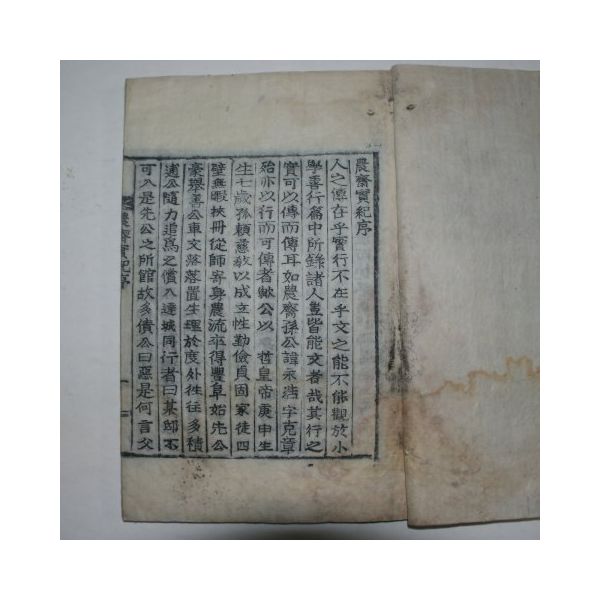 農齋實紀序
人之傳在乎實行不在乎文之能不能觀於小
學善行篇中所錄諸人豈皆能文者哉其行之
實可以傳而傳耳如農齋孫公諱永浩字克章
殆亦以行而可傳者歟公以 哲皇帝庚申生
生七歲孤賴慈敎以成立性勤儉貞固家徒四
壁無暇挾冊從師寄身農流卒得豐阜始先公
豪擧善公車文落落置生理於度外徃徃多積
逋公隨力追爲之償入達城同行者曰某邸不
可入是先公之所館故多債公曰惡是何言父
農齋實紀序
一